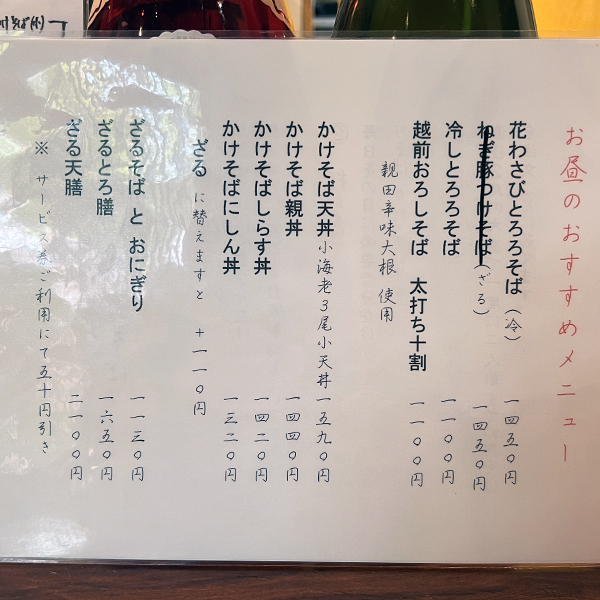 お昼のおすすめメニュー
花わさびとろろそば(冷) 一四五〇円
ねぎ豚つけそば(ざる) 一四五〇円
冷しとろろそば 一一〇〇円
越前おろしそば 太打ち十割 一一〇〇円
親田辛味大根 使用
かけそば天丼 小海老3尾小天丼 一五九〇円
かけそば親丼 一四四〇円
かけそばしらす丼 一四二〇円
かけそばにしん丼 一三二〇円
ざる に替えますと +一一〇円
ざるそば と おにぎり 一一三〇円
ざるとろ膳 一六五〇円
ざる天膳 二一〇〇円
※ サービス券ご利用にて五十円引き